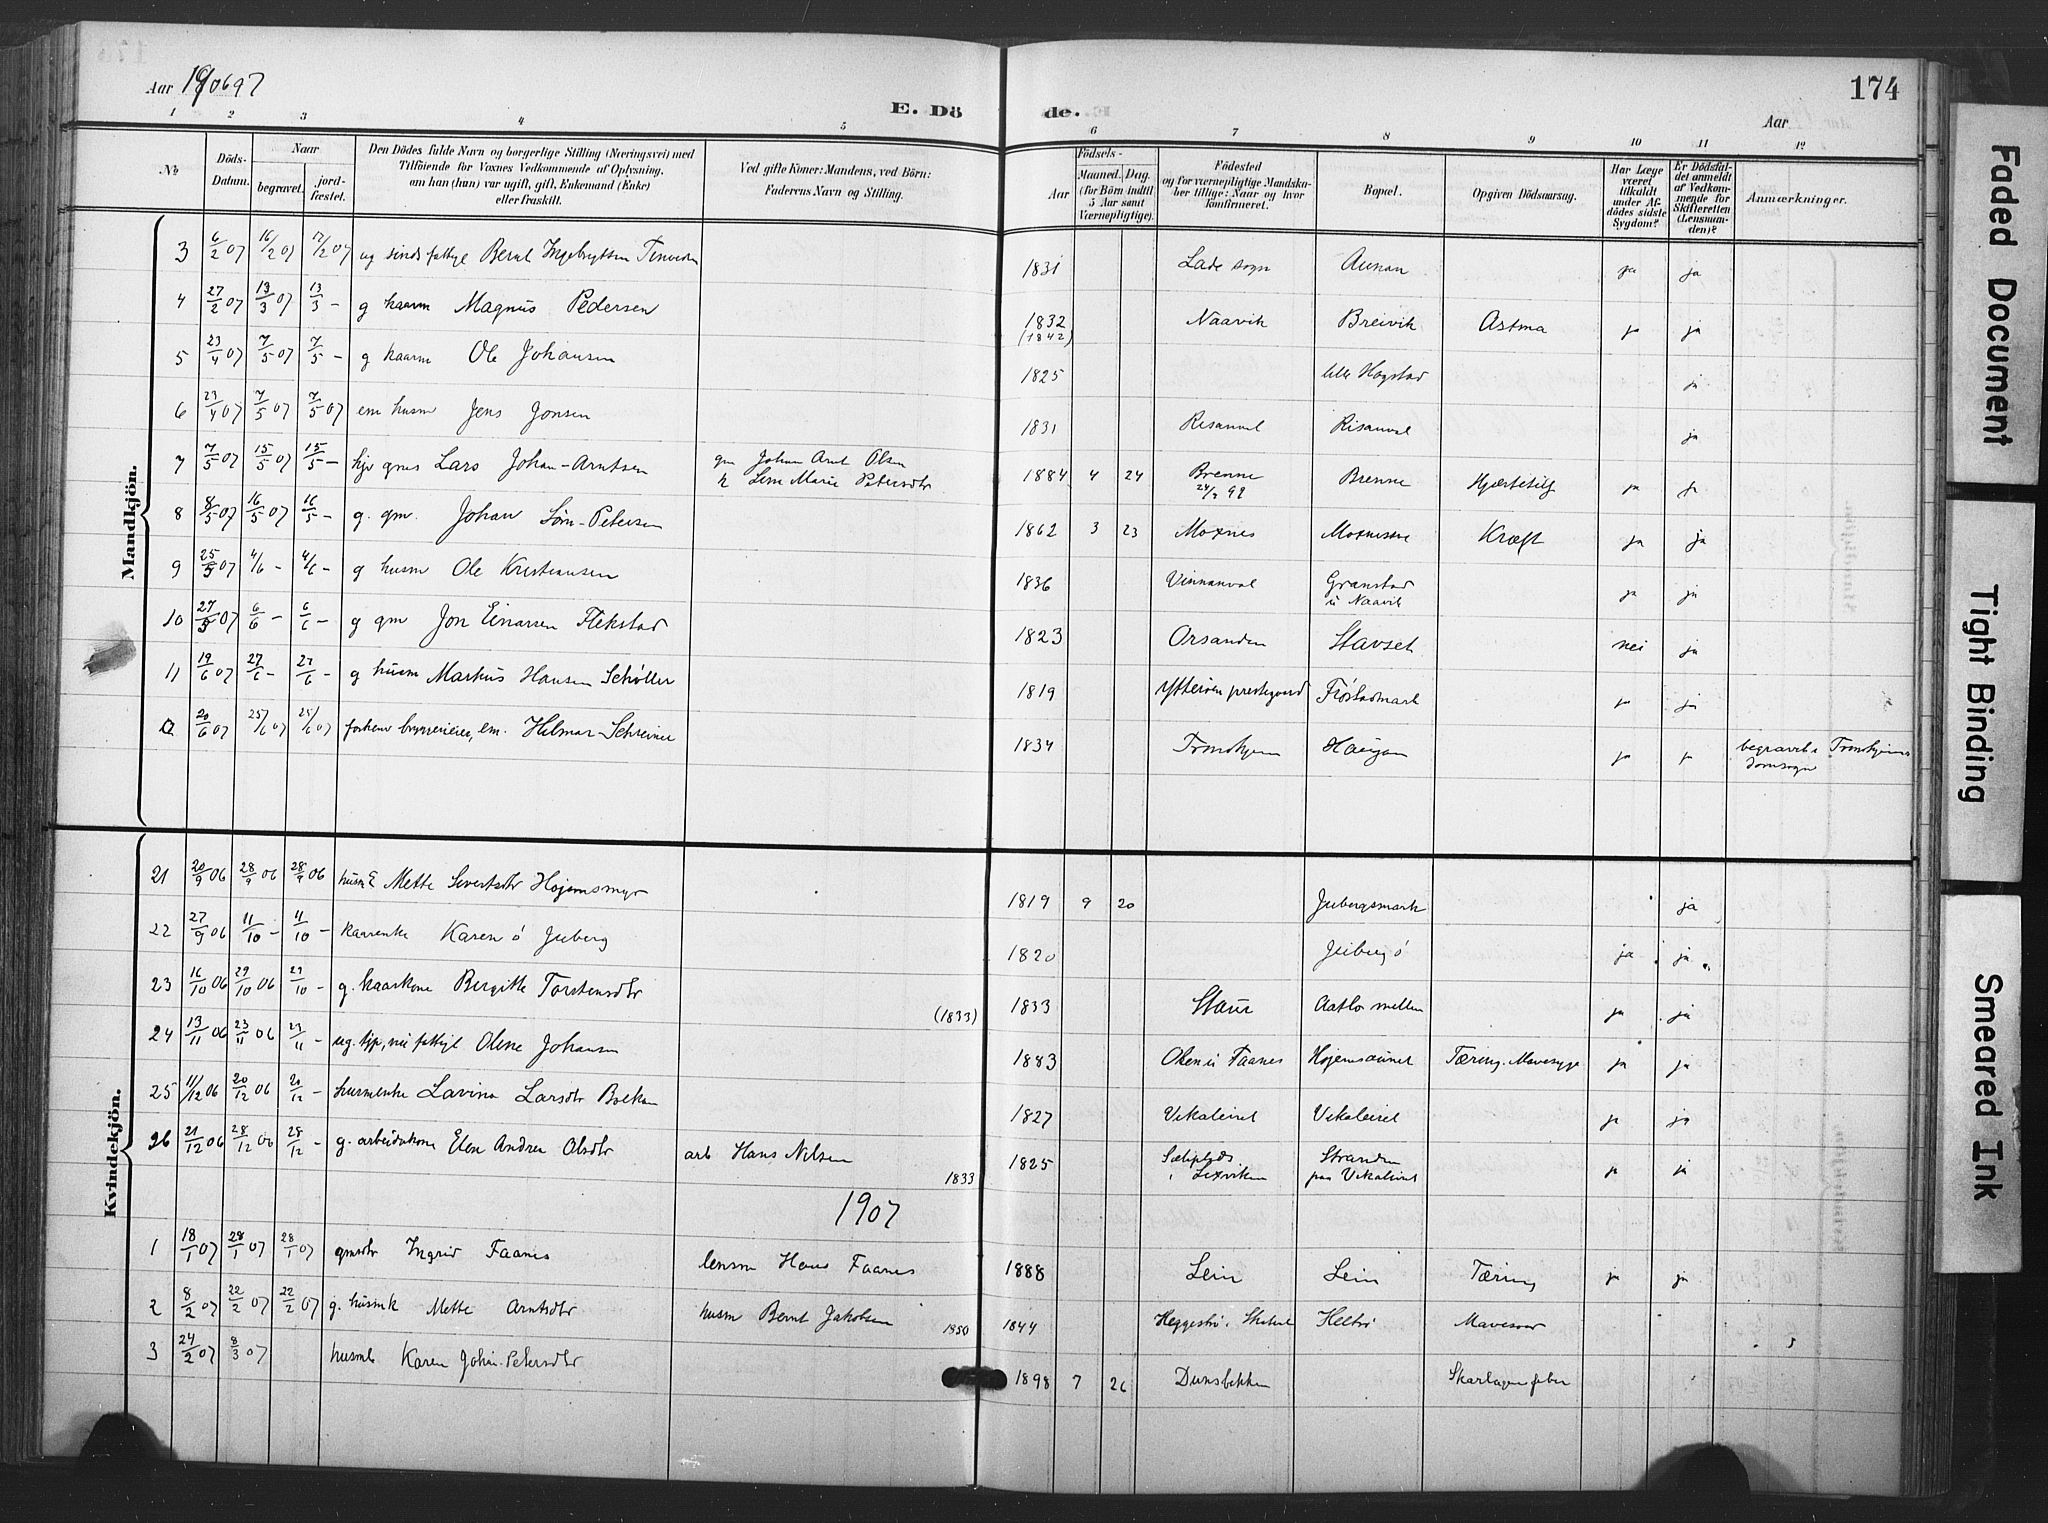 Aar 190697
E. Döde.
Aar
174
1 2 3 4 5 6 7 8 9 10 11 12
No
Döds-Datum.
Naar
begravet.
jordfæstet.
Den Dödes fulde Navn og borgerlige Stilling (Næringsvei) med Tilföiende for Voxnes Vedkommende af Oplysning, om han (hun) var ugift, gift, Enkemand (Enke) eller fraskilt.
Ved gifte Koner: Mandens, ved Börn: Faderens Navn og Stilling.
Födsels-
Aar
Maaned. Dag.
(for Börn indtil 5 Aar samt Værnepligtige).
Födested
og for værnepligtige Mandskaber tillige: Naar og hvor konfirmeret.
Bopæl.
Opgiven Dödsaarsag.
Har Læge været tilkaldt under Afdödes sidste Sygdom?
Er Dödsfaldet anmeldt af Vedkommende for Skifteretten (Lensmanden)?
Anmærkninger.
Mandkjön.
3 6/2 07 16/2 07 17/2 07 ug sindsfattige Bernt Ingebrigtsen 1831 Lade sogn Aunan ja ja
4 27/2 07 13/3 07 13/3 - g kaarm Magnus Pedersen 1832 (1842) Naavik Breivik Astma ja ja
5 23/4 07 7/5 07 7/5 - g kaarm Ole Johansen 1825 lille Hogstad ja
6 23/4 07 7/5 07 7/5 07 em husm Jens Jonsen 1831 Risanval Risanval ja
7 7/5 07 15/5 07 15/5 - Lars Johan Arntsen gm Johan Arnt Olsen 1884 4 24 Brenne Brenne Hjærtefeil ja ja
k Line Marie Petersdtr
8 8/5 07 16/5 07 16/5 - g. gm. Johan Sørn Petersen 1862 3 23 Moxnes Kræft ja ja
9 25/5 07 4/6 - 4/6 - g husm Ole Kristiansen 1836 Vinnanval Granstad u Naavik ja ja
10 27/5 07 6/6 - 6/6 - g gm Jon Einarsen Flekstad 1823 Orsanden Stavset nei ja
11 19/6 07 27/6 - 27/6 - g husm Markus Hansen Schøller 1819 Ytterøen prestegaard ja ja
12 20/6 07 25/6 07 25/6 07 em. Hilmar Schreiner 1834 Tronhjem Haugan ja ja begravet i Tronhjems Domsogn
Kvindekjön.
21 20/9 06 28/9 06 28/9 06 husmE Mette Sivertsdtr Højemsmyr 1819 9 20 Jubergsmark ja
22 27/9 06 11/10 - 11/10 - kaarenke Karen ö Juberg 1820 Juberg ö ja ja
23 16/10 06 29/10 06 29/10 - g. kaarkone Bergitte Torstensdtr (1833) 1833 Staur ja ja
24 13/11 06 23/11 06 23/11 - ug. Oline Johansen 1883 Oken u Faanes Højemsaunet Tæring. Mavesyge ja ja
25 11/12 06 20/12 06 20/12 - husmenke Lavina Larsdtr 1827 Vikaleiret Vikaleiret ja ja
26 21/12 06 28/12 06 28/12 - g. arbeidskone Elen Andrea Olsdtr arb Hans Nilsen 1833 1825 i Lexviken Stranden paa Vikaleiret ja ja
1907
1 18/1 07 28/1 07 28/1 07 gmsdtr Ingrid Faanes lensm Hans Faanes 1888 Lein Lein Tæring ja ja
2 8/2 07 22/2 07 22/2 07 g. husmk Mette Arntsdtr husm Bernt Jakobsen 1850 1844
3 24/2 07 8/3 07 Karen Johan. Petersdtr 1898 7 26 Dunsbekken Skarlagensfeber
Faded Document
Tight Binding
Smeared Ink